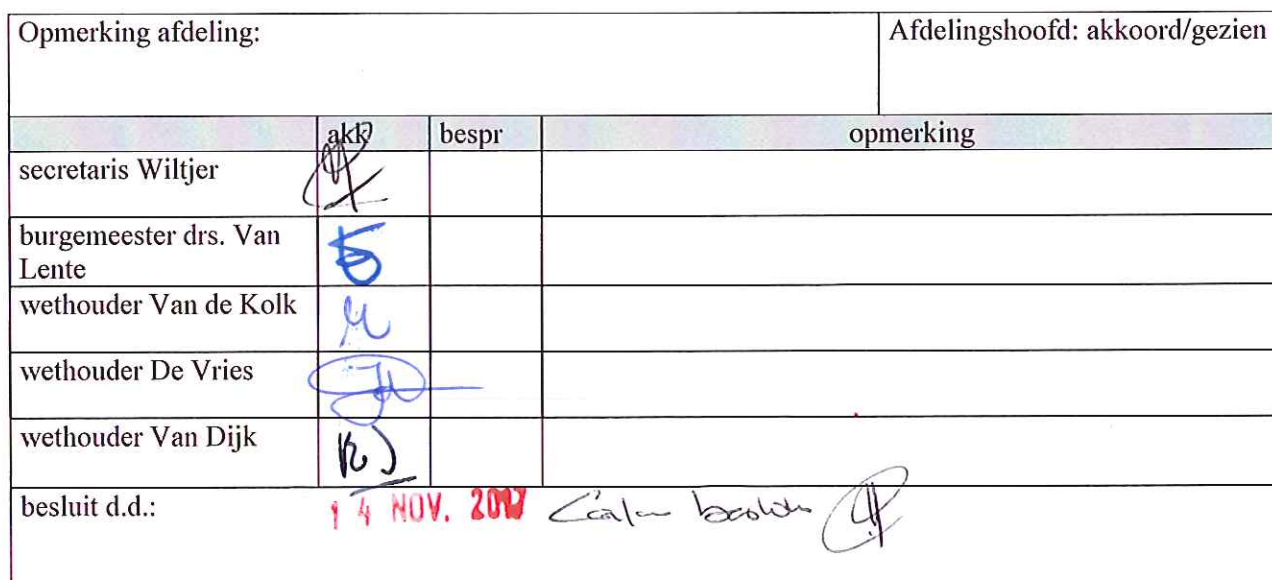 Opmerking afdeling:
Afdelingshoofd: akkoord/gezien
akk
bespr
opmerking
secretaris Wiltjer
burgemeester drs. Van
Lente
wethouder Van de Kolk
wethouder De Vries
wethouder Van Dijk
besluit d.d.:
14 NOV. 2017